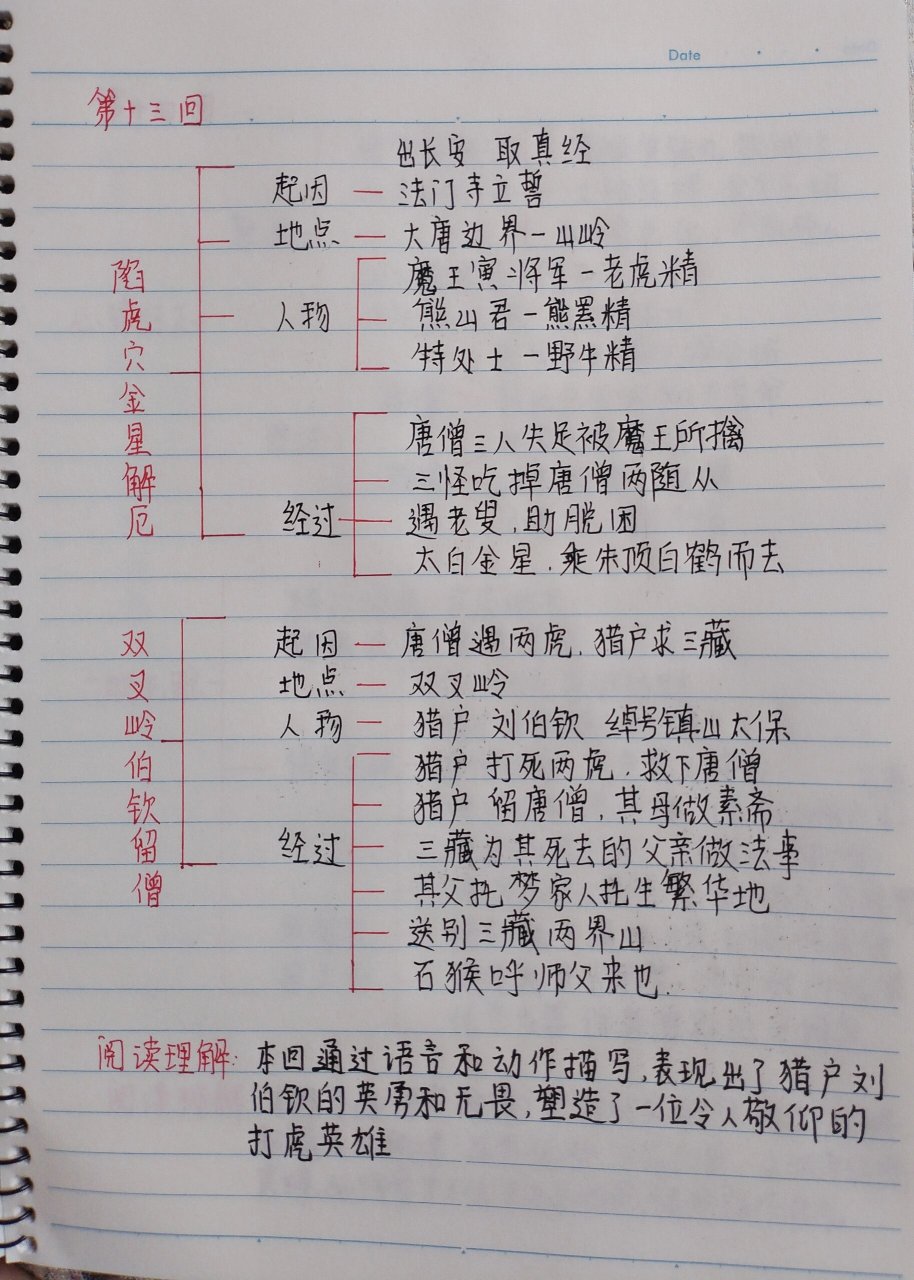 Date
第十三回
陷虎穴金星解厄
出长安 取真经
起因 — 法门寺立誓
地点 — 大唐边界一山岭
人物
魔王寅将军—老虎精
熊山君—熊罴精
特处士—野牛精
经过
唐僧三人失足被魔王所擒
三怪吃掉唐僧两随从
遇老叟,助脱困
太白金星,乘朱顶白鹤而去
双叉岭伯钦留僧
起因 — 唐僧遇两虎,猎户求三藏
地点 — 双叉岭
人物 — 猎户 刘伯钦 绰号镇山太保
经过
猎户 打死两虎,救下唐僧
猎户 留唐僧,其母做素斋
三藏为其死去的父亲做法事
其父托梦家人托生繁华地
送别三藏两界山
石猴呼师父来也.
阅读理解:本回通过语言和动作描写,表现出了猎户刘
伯钦的英勇和无畏,塑造了一位令人敬仰的
打虎英雄